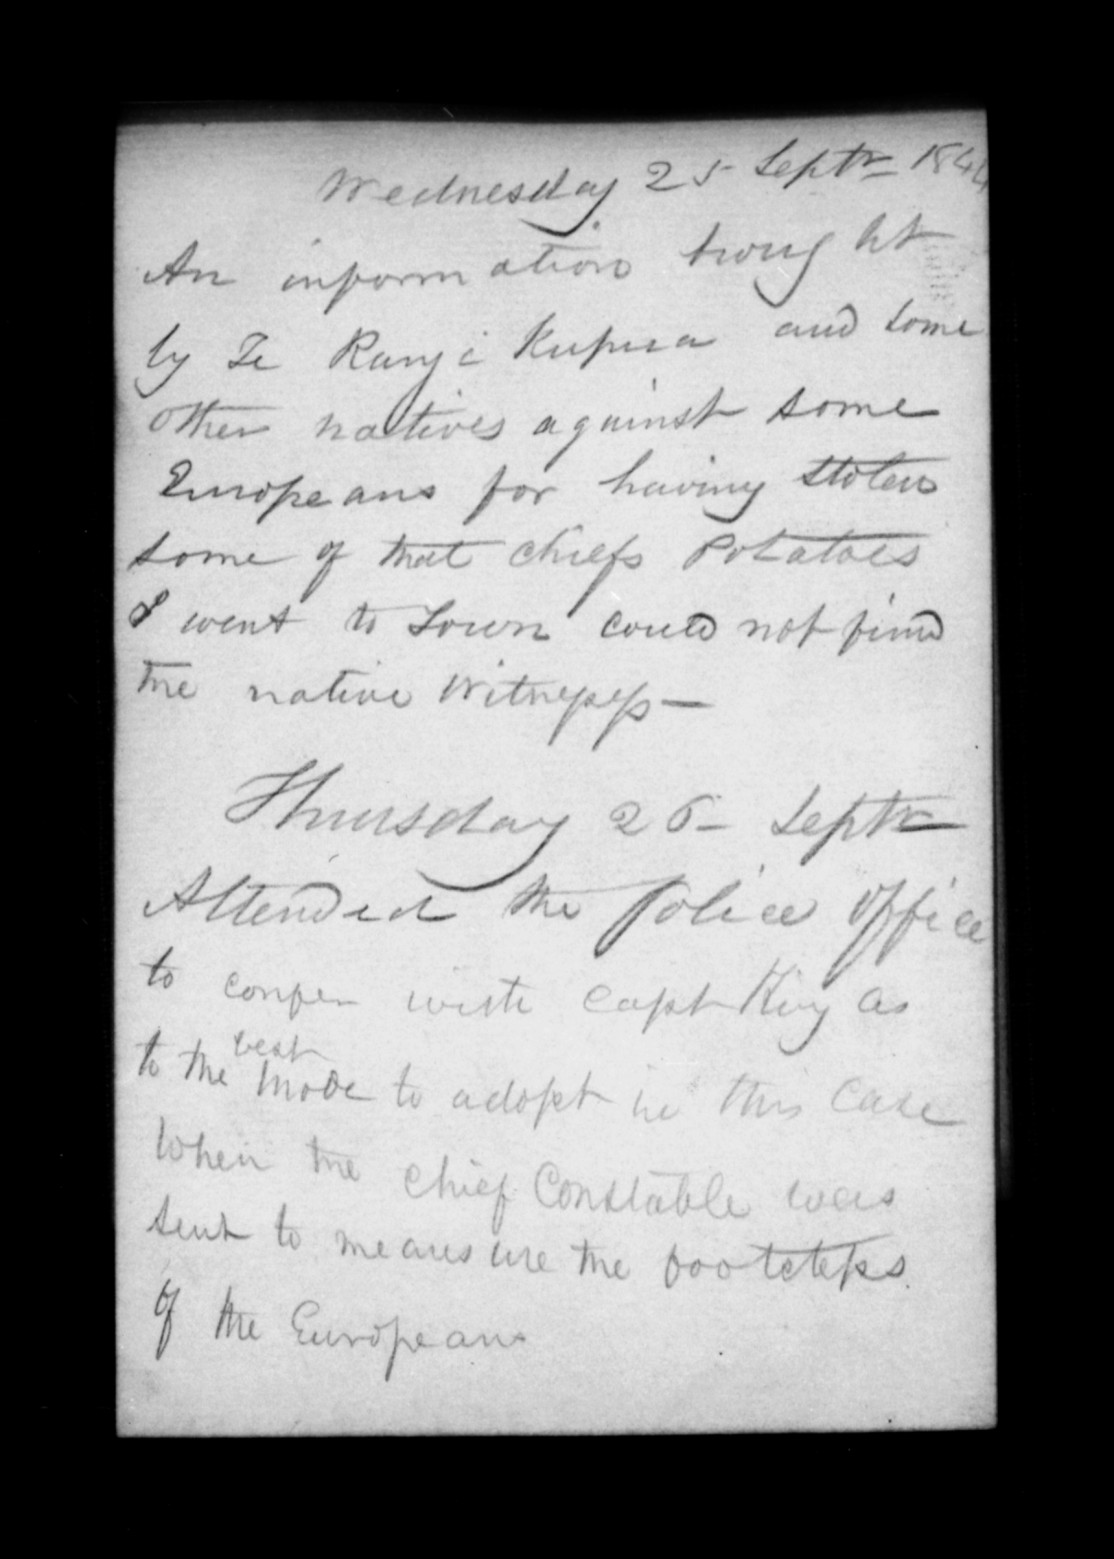 Wednesday 25 Septr 1844
An information brought
by Te Rangi Kupua and some
other natives against some
Europeans for having stolen
some of that chiefs Potatoes
I went to Town could not find
the native Witnesses —
Thursday 26 - Septr
Attended the Police Office
to confer with Capt King as
best
to the mode to adopt in this Case
When the chief Constable was
sent to measure the footsteps
of the Europeans